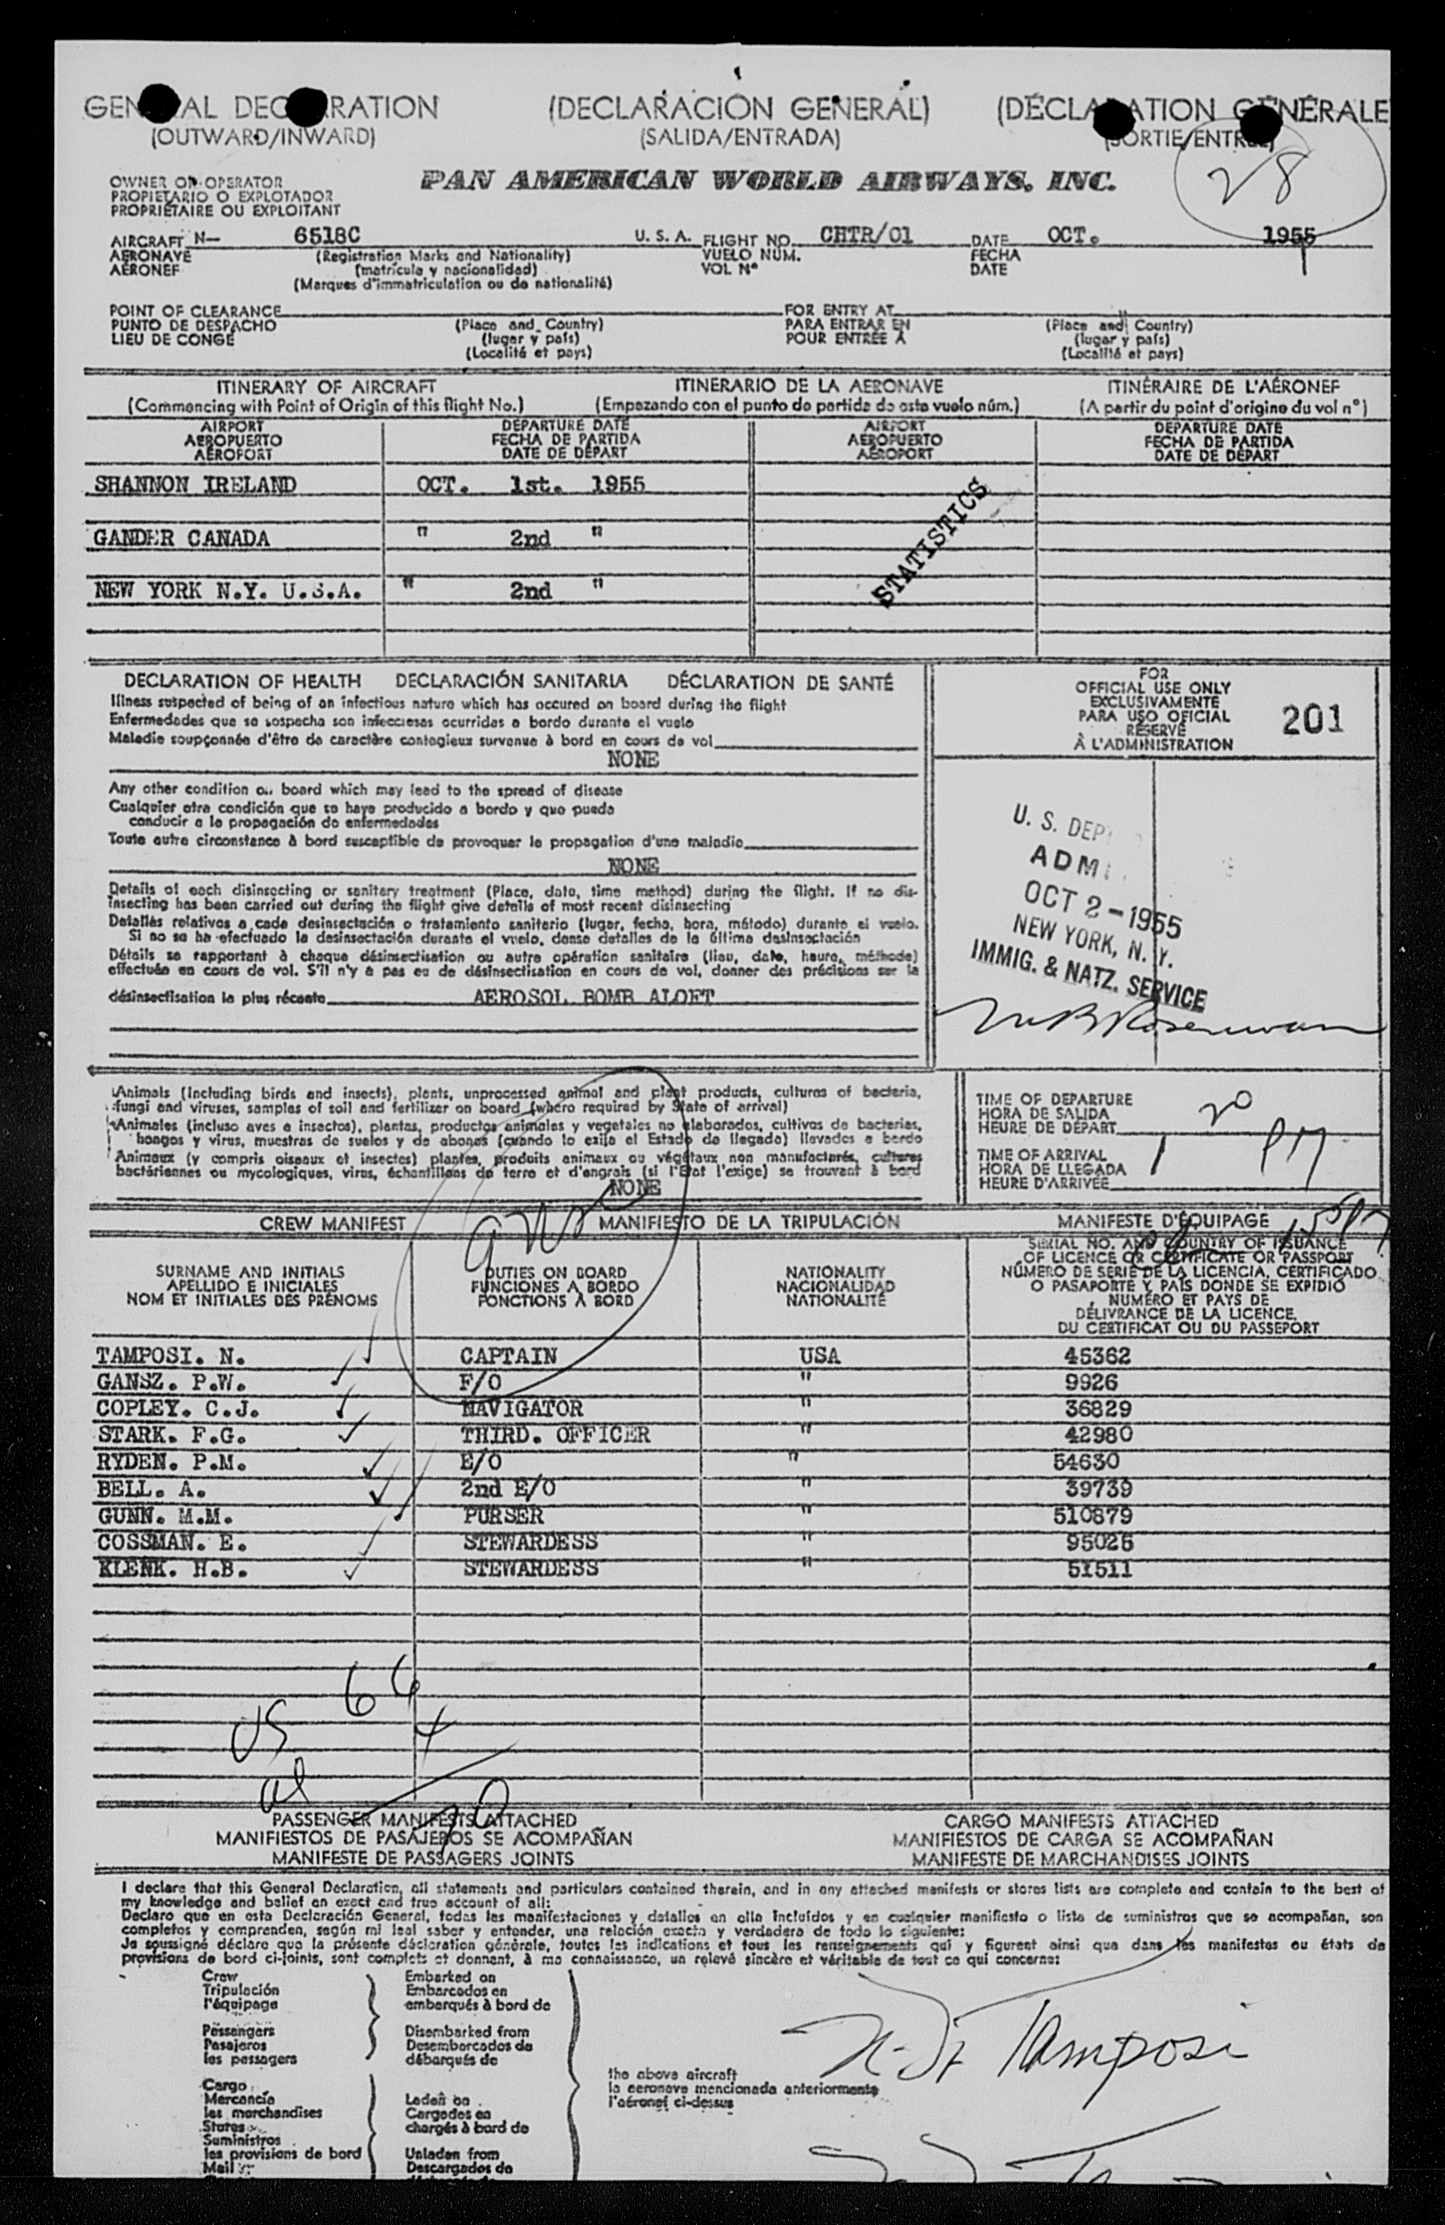 GENERAL DECLARATION (DECLARACIÓN GENERAL) (DÉCLARATION GÉNÉRALE
(OUTWARD/INWARD) (SALIDA/ENTRADA) (SORTIE/ENTRÉE)
28
OWNER OR OPERATOR
PROPIETARIO O EXPLOTADOR
PROPRIÉTAIRE OU EXPLOITANT
PAN AMERICAN WORLD AIRWAYS, INC.
AIRCRAFT N- 6518C U.S.A. FLIGHT NO. CHTR/01 DATE OCT. 1955
AERONAVE (Registration Marks and Nationality) VUELO NÚM. FECHA
AÉRONEF (matrícula y nacionalidad) VOL Nº DATE
(Marques d'immatriculation ou de nationalité)
POINT OF CLEARANCE FOR ENTRY AT
PUNTO DE DESPACHO (Place and Country) PARA ENTRAR EN (Place and Country)
LIEU DE CONGÉ (lugar y país) POUR ENTRÉE À (lugar y país)
(Localité et pays) (Localité et pays)
ITINERARY OF AIRCRAFT ITINERARIO DE LA AERONAVE ITINÉRAIRE DE L'AÉRONEF
(Commencing with Point of Origin of this flight No.) (Empezando con el punto de partida de este vuelo núm.) (A partir du point d'origine du vol nº)
AIRPORT DEPARTURE DATE AIRPORT DEPARTURE DATE
AEROPUERTO FECHA DE PARTIDA AEROPUERTO FECHA DE PARTIDA
AÉROPORT DATE DE DÉPART AÉROPORT DATE DE DÉPART
SHANNON IRELAND OCT. 1st. 1955
GANDER CANADA " 2nd "
NEW YORK N.Y. U.S.A. " 2nd "
STATISTICS
DECLARATION OF HEALTH DECLARACIÓN SANITARIA DÉCLARATION DE SANTÉ
Illness suspected of being of an infectious nature which has occured on board during the flight
Enfermedades que se sospecha son infecciesas ocurridas a bordo durante el vuelo
Maladie soupçonnée d'être de caractère contagieux survenue à bord en cours de vol
NONE
Any other condition on board which may lead to the spread of disease
Cualquier otra condición que se haya producido a bordo y que pueda
conducir a la propagación de enfermedades
Toute autre circonstance à bord susceptible de provoquer la propagation d'une maladie
NONE
Details of each disinsecting or sanitary treatment (Place, date, time method) during the flight. If no dis-
insecting has been carried out during the flight give details of most recent disinsecting
Detalles relativos a cada desinsectación o tratamiento sanitario (lugar, fecha, hora, método) durante el vuelo.
Si no se ha efectuado la desinsectación durante el vuelo, dense detalles de la última desinsectación
Détails se rapportant à chaque désinsectisation ou autre opération sanitaire (lieu, date, heure, méthode)
effectuée en cours de vol. S'il n'y a pas eu de désinsectisation en cours de vol, donner des précisions sur la
désinsectisation la plus récente AEROSOL BOMB ALOFT
FOR
OFFICIAL USE ONLY
EXCLUSIVAMENTE
PARA USO OFICIAL
RÉSERVÉ
À L'ADMINISTRATION
201
U. S. DEP
ADMI
OCT 2-1955
NEW YORK, N. Y.
IMMIG. & NATZ. SERVICE
Animals (Including birds and insects), plants, unprocessed animal and plant products, cultures of bacteria,
fungi and viruses, samples of soil and fertilizer on board (where required by State of arrival)
Animales (incluso aves e insectos), plantas, productos animales y vegetales no elaborados, cultivos de bacterias,
hongos y virus, muestras de suelos y de abonos (cuando lo exija el Estado de llegada) llevados a bordo
Animaux (y compris oiseaux et insectes) plantes, produits animaux ou végétaux non manufacturés, cultures
bactériennes ou mycologiques, virus, échantillons de terre et d'engrais (si l'État l'exige) se trouvant à bord
NONE
TIME OF DEPARTURE
HORA DE SALIDA
HEURE DE DÉPART
20
TIME OF ARRIVAL
HORA DE LLEGADA
HEURE D'ARRIVÉE
1 PM
CREW MANIFEST MANIFIESTO DE LA TRIPULACIÓN MANIFESTE D'ÉQUIPAGE
SURNAME AND INITIALS
APELLIDO E INICIALES
NOM ET INITIALES DES PRÉNOMS
DUTIES ON BOARD
FUNCIONES A BORDO
FONCTIONS À BORD
NATIONALITY
NACIONALIDAD
NATIONALITÉ
SERIAL NO. AND COUNTRY OF ISSUANCE
OF LICENCE OR CERTIFICATE OR PASSPORT
NÚMERO DE SERIE DE LA LICENCIA, CERTIFICADO
O PASAPORTE Y PAÍS DONDE SE EXPIDIÓ
NUMÉRO ET PAYS DE
DÉLIVRANCE DE LA LICENCE,
DU CERTIFICAT OU DU PASSEPORT
TAMPOSI. N. CAPTAIN USA 45362
GANSZ. P.W. F/O " 9926
COPLEY. C.J. NAVIGATOR " 36829
STARK. F.G. THIRD. OFFICER " 42980
RYDEN. P.M. E/O " 54630
BELL. A. 2nd E/O " 39739
GUNN. M.M. PURSER " 510879
COSSMAN. E. STEWARDESS " 95026
KLENK. H.B. STEWARDESS " 51511
US 66
al 4
70
PASSENGER MANIFESTS ATTACHED CARGO MANIFESTS ATTACHED
MANIFIESTOS DE PASAJEROS SE ACOMPAÑAN MANIFIESTOS DE CARGA SE ACOMPAÑAN
MANIFESTE DE PASSAGERS JOINTS MANIFESTE DE MARCHANDISES JOINTS
I declare that this General Declaration, all statements and particulars contained therein, and in any attached manifests or stores lists are complete and contain to the best of
my knowledge and belief an exact and true account of all:
Declaro que en esta Declaración General, todas las manifestaciones y detalles en ella incluídos y en cualquier manifiesto o lista de suministros que se acompañan, son
completos y comprenden, según mi leal saber y entender, una relación exacta y verdadera de todo lo siguiente:
Je soussigné déclare que la présente déclaration générale, toutes les indications et tous les renseignements qui y figurent ainsi que dans les manifestes ou états de
provisions de bord ci-joints, sont complets et donnent, à ma connaissance, un relevé sincère et véritable de tout ce qui concerne:
Crew Embarked on
Tripulación Embarcados en
l'équipage embarqués à bord de
Passengers Disembarked from
Pasajeros Desembarcados de
les passagers débarqués de
the above aircraft
la aeronave mencionada anteriormente
l'aéronef ci-dessus
Tamposi
Cargo
Mercancía Laden on
les marchandises Cargados en
Stores chargés à bord de
Suministros
les provisions de bord Unladen from
Mail Descargados de